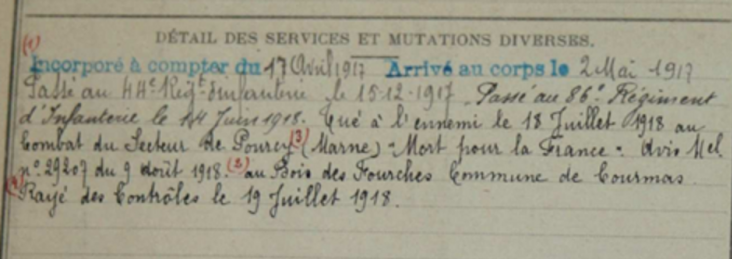 DÉTAIL DES SERVICES ET MUTATIONS DIVERSES.
(1)
Incorporé à compter du 17 Avril 1917 Arrivé au corps le 2 Mai 1917
Passé au 44e Régt d'Infanterie le 15-12-1917. Passé au 86e Régiment
d'Infanterie le 14 Juin 1918. Tué à l'ennemi le 18 Juillet 1918 au
Combat du Secteur de Pourcy (3) (Marne) - Mort pour la France - Avis Mel
n° 29207 du 9 Août 1918. (2) au Bois des Fourches Commune de Courmas
Rayé des Contrôles le 19 Juillet 1918.